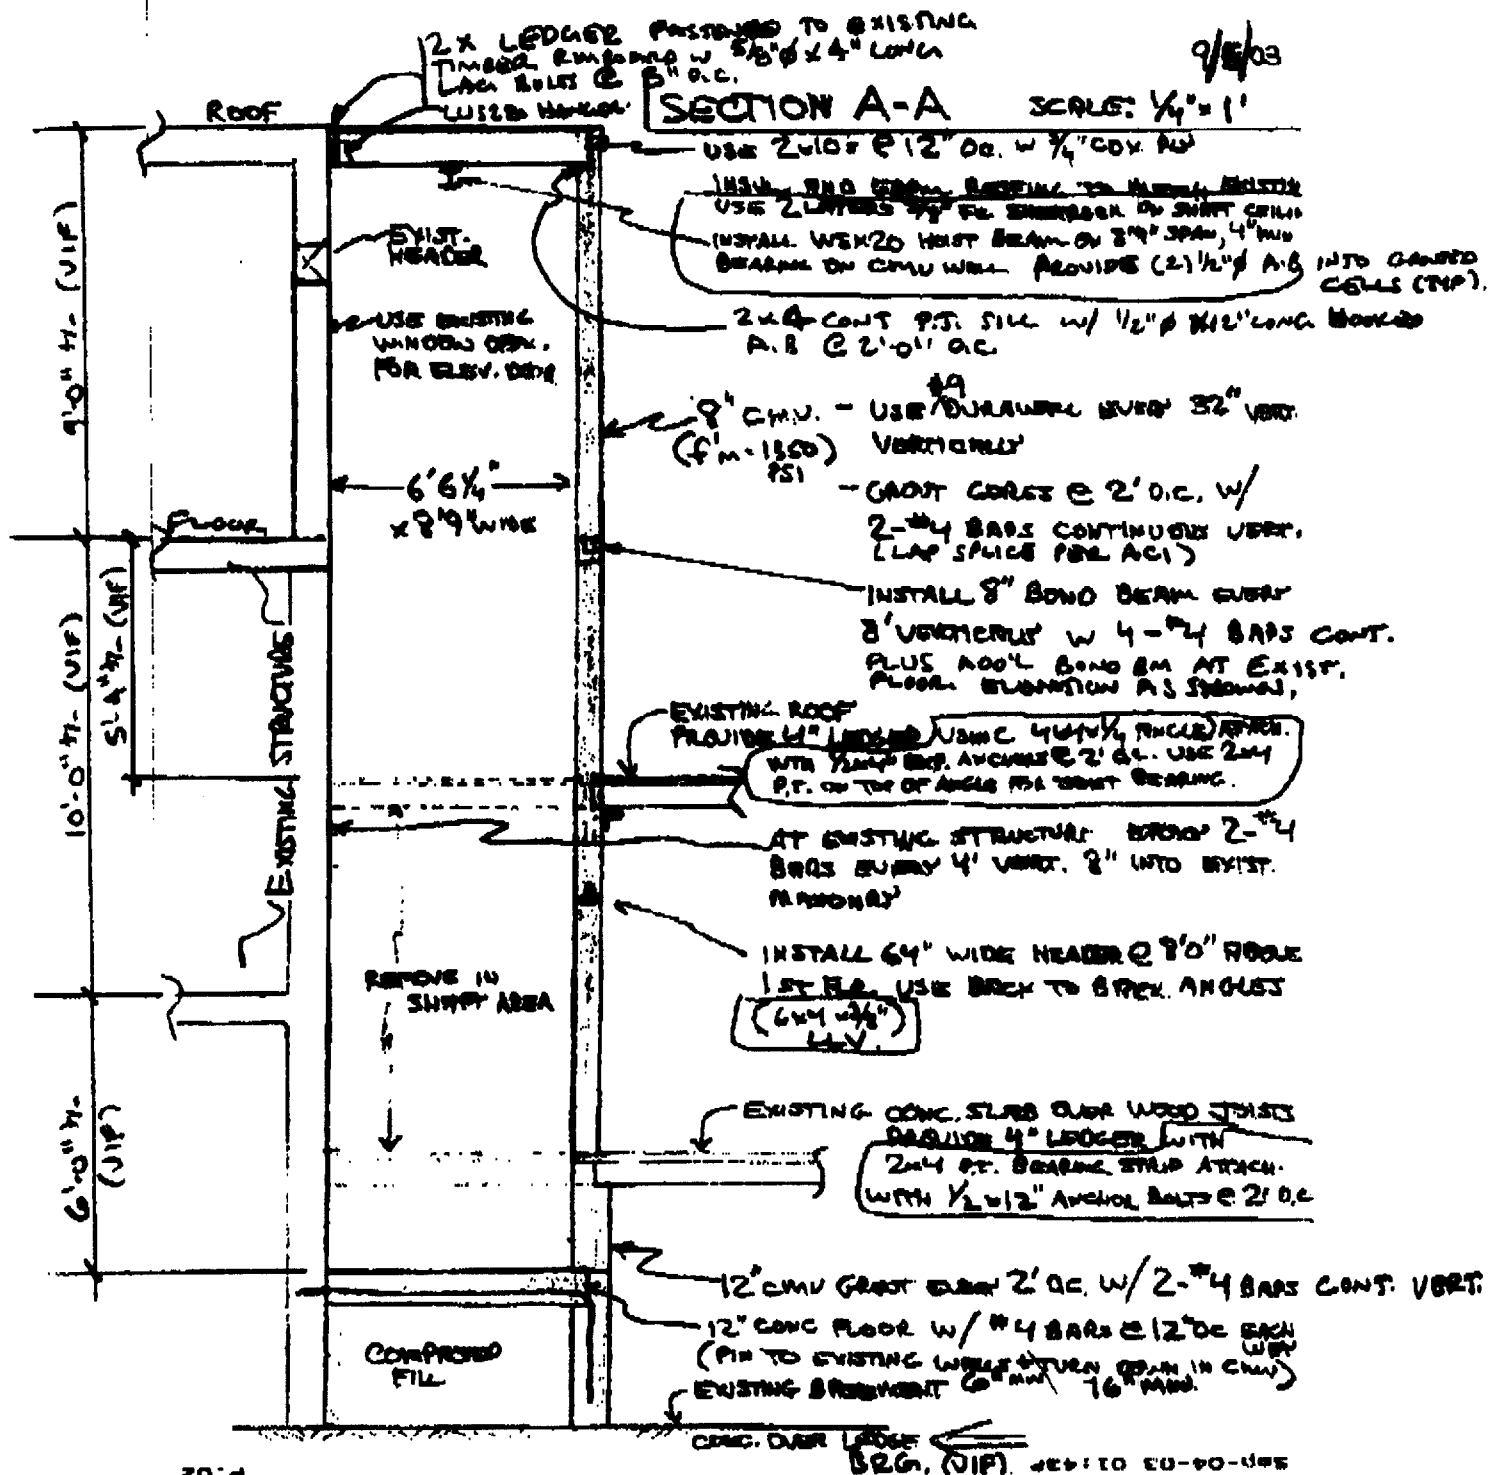 2x LEDGER FASTENED TO EXISTING
TIMBER RIMBOARD W 5/8"ø x 4" LONG
LAG BOLTS @ 8" O.C.
HANGER
9/ /03
SECTION A-A
SCALE: 1/4" = 1'
ROOF
USE 2x10s @ 12" O.C. W 3/4" CDX PLY
INSUL AND ROOFING TO EXISTIN
USE 2 LAYERS 5/8" FC SHEETROCK ON SHAFT CEILIN
INSTALL W8x20 HOIST BEAM ON 8'9" SPAN, 4" MIN
BEARING ON CMU WALL PROVIDE (2) 1/2"ø A.B INTO
CELLS (TYP).
2x4 CONT P.T. SILL W/ 1/2"ø x12" LONG HOOKED
A.B @ 2'-0" O.C.
EXIST.
HEADER
USE EXISTING
WINDOW OPEN.
FOR ELEV. DOOR
9'-0" +/- (VIF)
#9
8" C.M.U. - USE DURAWALL EVERY 32" VERT.
VERTICALLY
(f'm = 1350)
PSI
- GROUT CORES @ 2' O.C. W/
2-#4 BARS CONTINUOUS VERT.
(LAP SPLICE PER ACI)
6'6 1/4"
x 8'9" WIDE
FLOOR
INSTALL 8" BOND BEAM EVERY
8' VERTICALLY W 4-#4 BARS CONT.
PLUS ADD'L BOND BM AT EXIST.
FLOOR ELEVATION AS SHOWN.
10'-0" +/- (VIF)
5'-4" +/- (VIF)
EXISTING STRUCTURE
EXISTING ROOF
PROVIDE 4" LEDGER USING 4x4x1/4 ANGLE) ATTACH.
WITH 1/2x4" EXP. ANCHORS @ 2' O.C. USE 2x4
P.T. ON TOP OF ANGLE FOR JOIST BEARING.
AT EXISTING STRUCTURE 2-#4
BARS EVERY 4' VERT. 8" INTO EXIST.
MASONRY
INSTALL 64" WIDE HEADER @ 8'0" ABOVE
1ST FLR. USE BACK TO BACK ANGLES
(6x4x3/8")
LLV.
REMOVE IN
SHAFT AREA
6'-0" +/-
(VIF)
EXISTING CONC. SLAB OVER WOOD JOISTS
PROVIDE 4" LEDGER WITH
2x4 P.T. BEARING STRIP ATTACH.
WITH 1/2 x 12" ANCHOR BOLTS @ 2' O.C
12" CMU GROUT EVERY 2' O.C. W/ 2-#4 BARS CONT. VERT.
12" CONC FLOOR W/ #4 BARS @ 12" OC EACH
WAY
(PIN TO EXISTING WALLS + TURN DOWN IN CMU)
6" MIN 16" MIN.
EXISTING BASEMENT
COMPACTED
FILL
CONC. OVER LEDGE
BRG. (VIF)
Sep-04-03 01:43P
P.02